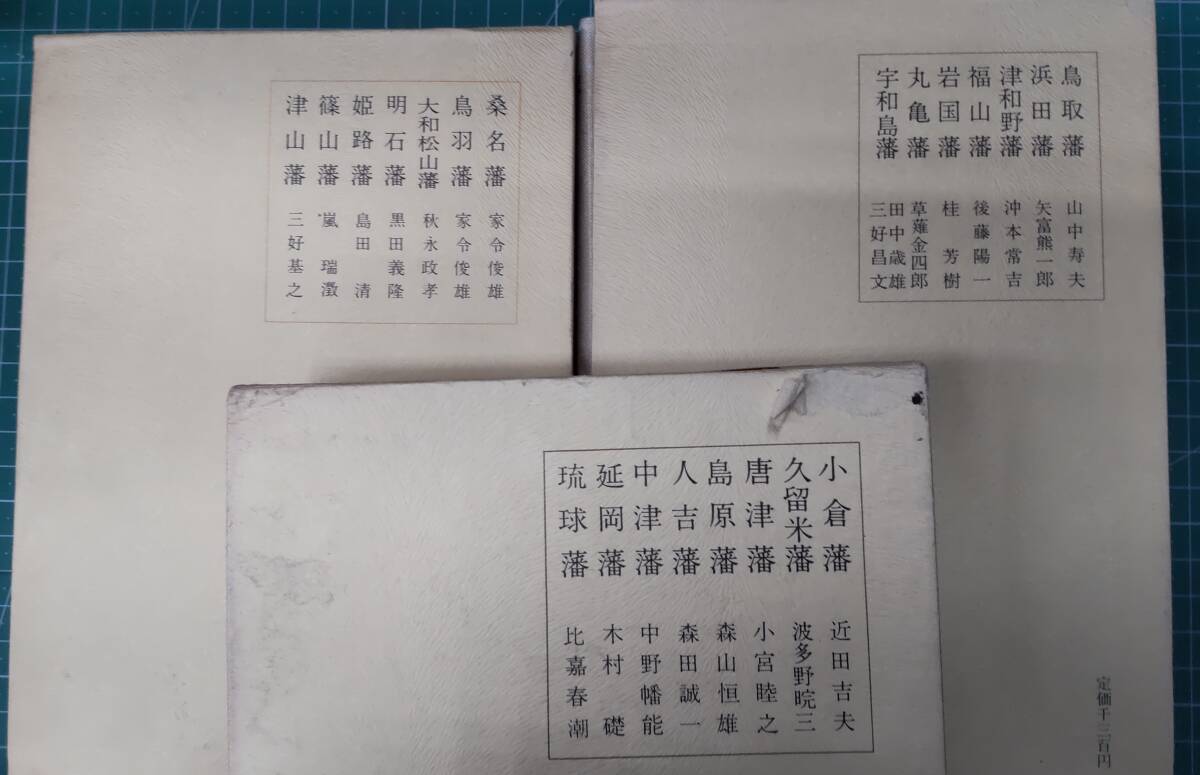 桑名藩 家令俊雄
鳥羽藩 家令俊雄
大和松山藩 秋永政孝
明石藩 黒田義隆
姫路藩 島田清
篠山藩 嵐瑞澂
津山藩 三好基之
鳥取藩 山中寿夫
浜田藩 矢富熊一郎
津和野藩 沖本常吉
福山藩 後藤陽一
岩国藩 桂芳樹
丸亀藩 草薙金四郎
宇和島藩 田中歳雄
三好昌文
定価千三百円
小倉藩 近田吉夫
久留米藩 波多野晥三
唐津藩 小宮睦之
島原藩 森山恒雄
人吉藩 森田誠一
中津藩 中野幡能
延岡藩 木村礎
琉球藩 比嘉春潮